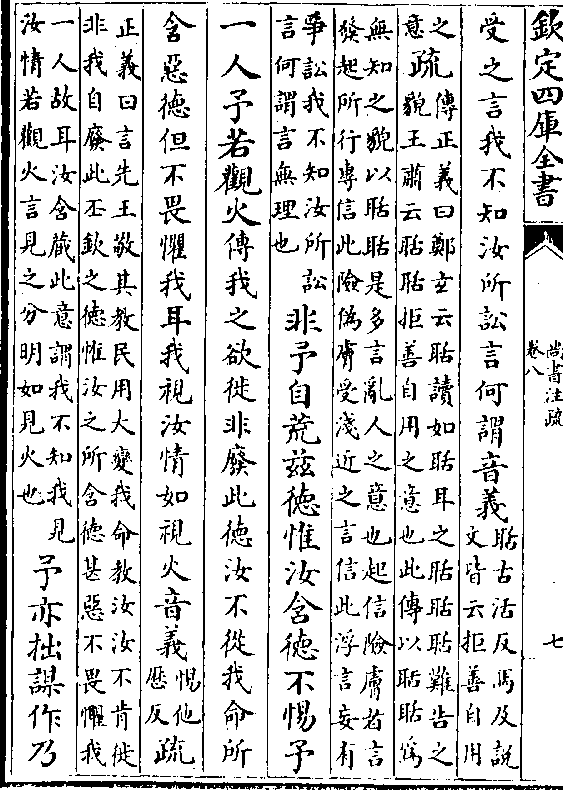 欽定四庫全書
尚書注疏
卷八
七
受之言我不知汝所訟言何謂音義聒古活反馬及說
文皆云拒善自用
之
意疏傳正義曰鄭玄云聒讀如聒耳之聒聒聒難告之
貌王肅云聒聒拒善自用之意也此傳以聒聒為
無知之貌以聒聒是多言亂人之意也起信險膚者言
發起所行專信此險偽膚受淺近之言信此浮言妄有
爭訟我不知汝所訟
言何謂言無理也非予自荒茲德惟汝含德不惕予
一人予若觀火傳我之欲徙非廢此德汝不從我命所
含惡德但不畏懼我耳我視汝情如視火音義惕他
歷反疏
正義曰言先王敬其教民用大變我命教汝汝不肯徙
非我自廢此丕欽之德惟汝之所含德甚惡不畏懼我
一人故耳汝含藏此意謂我不知我見
汝情若觀火言見之分明如見火也予亦拙謀作乃